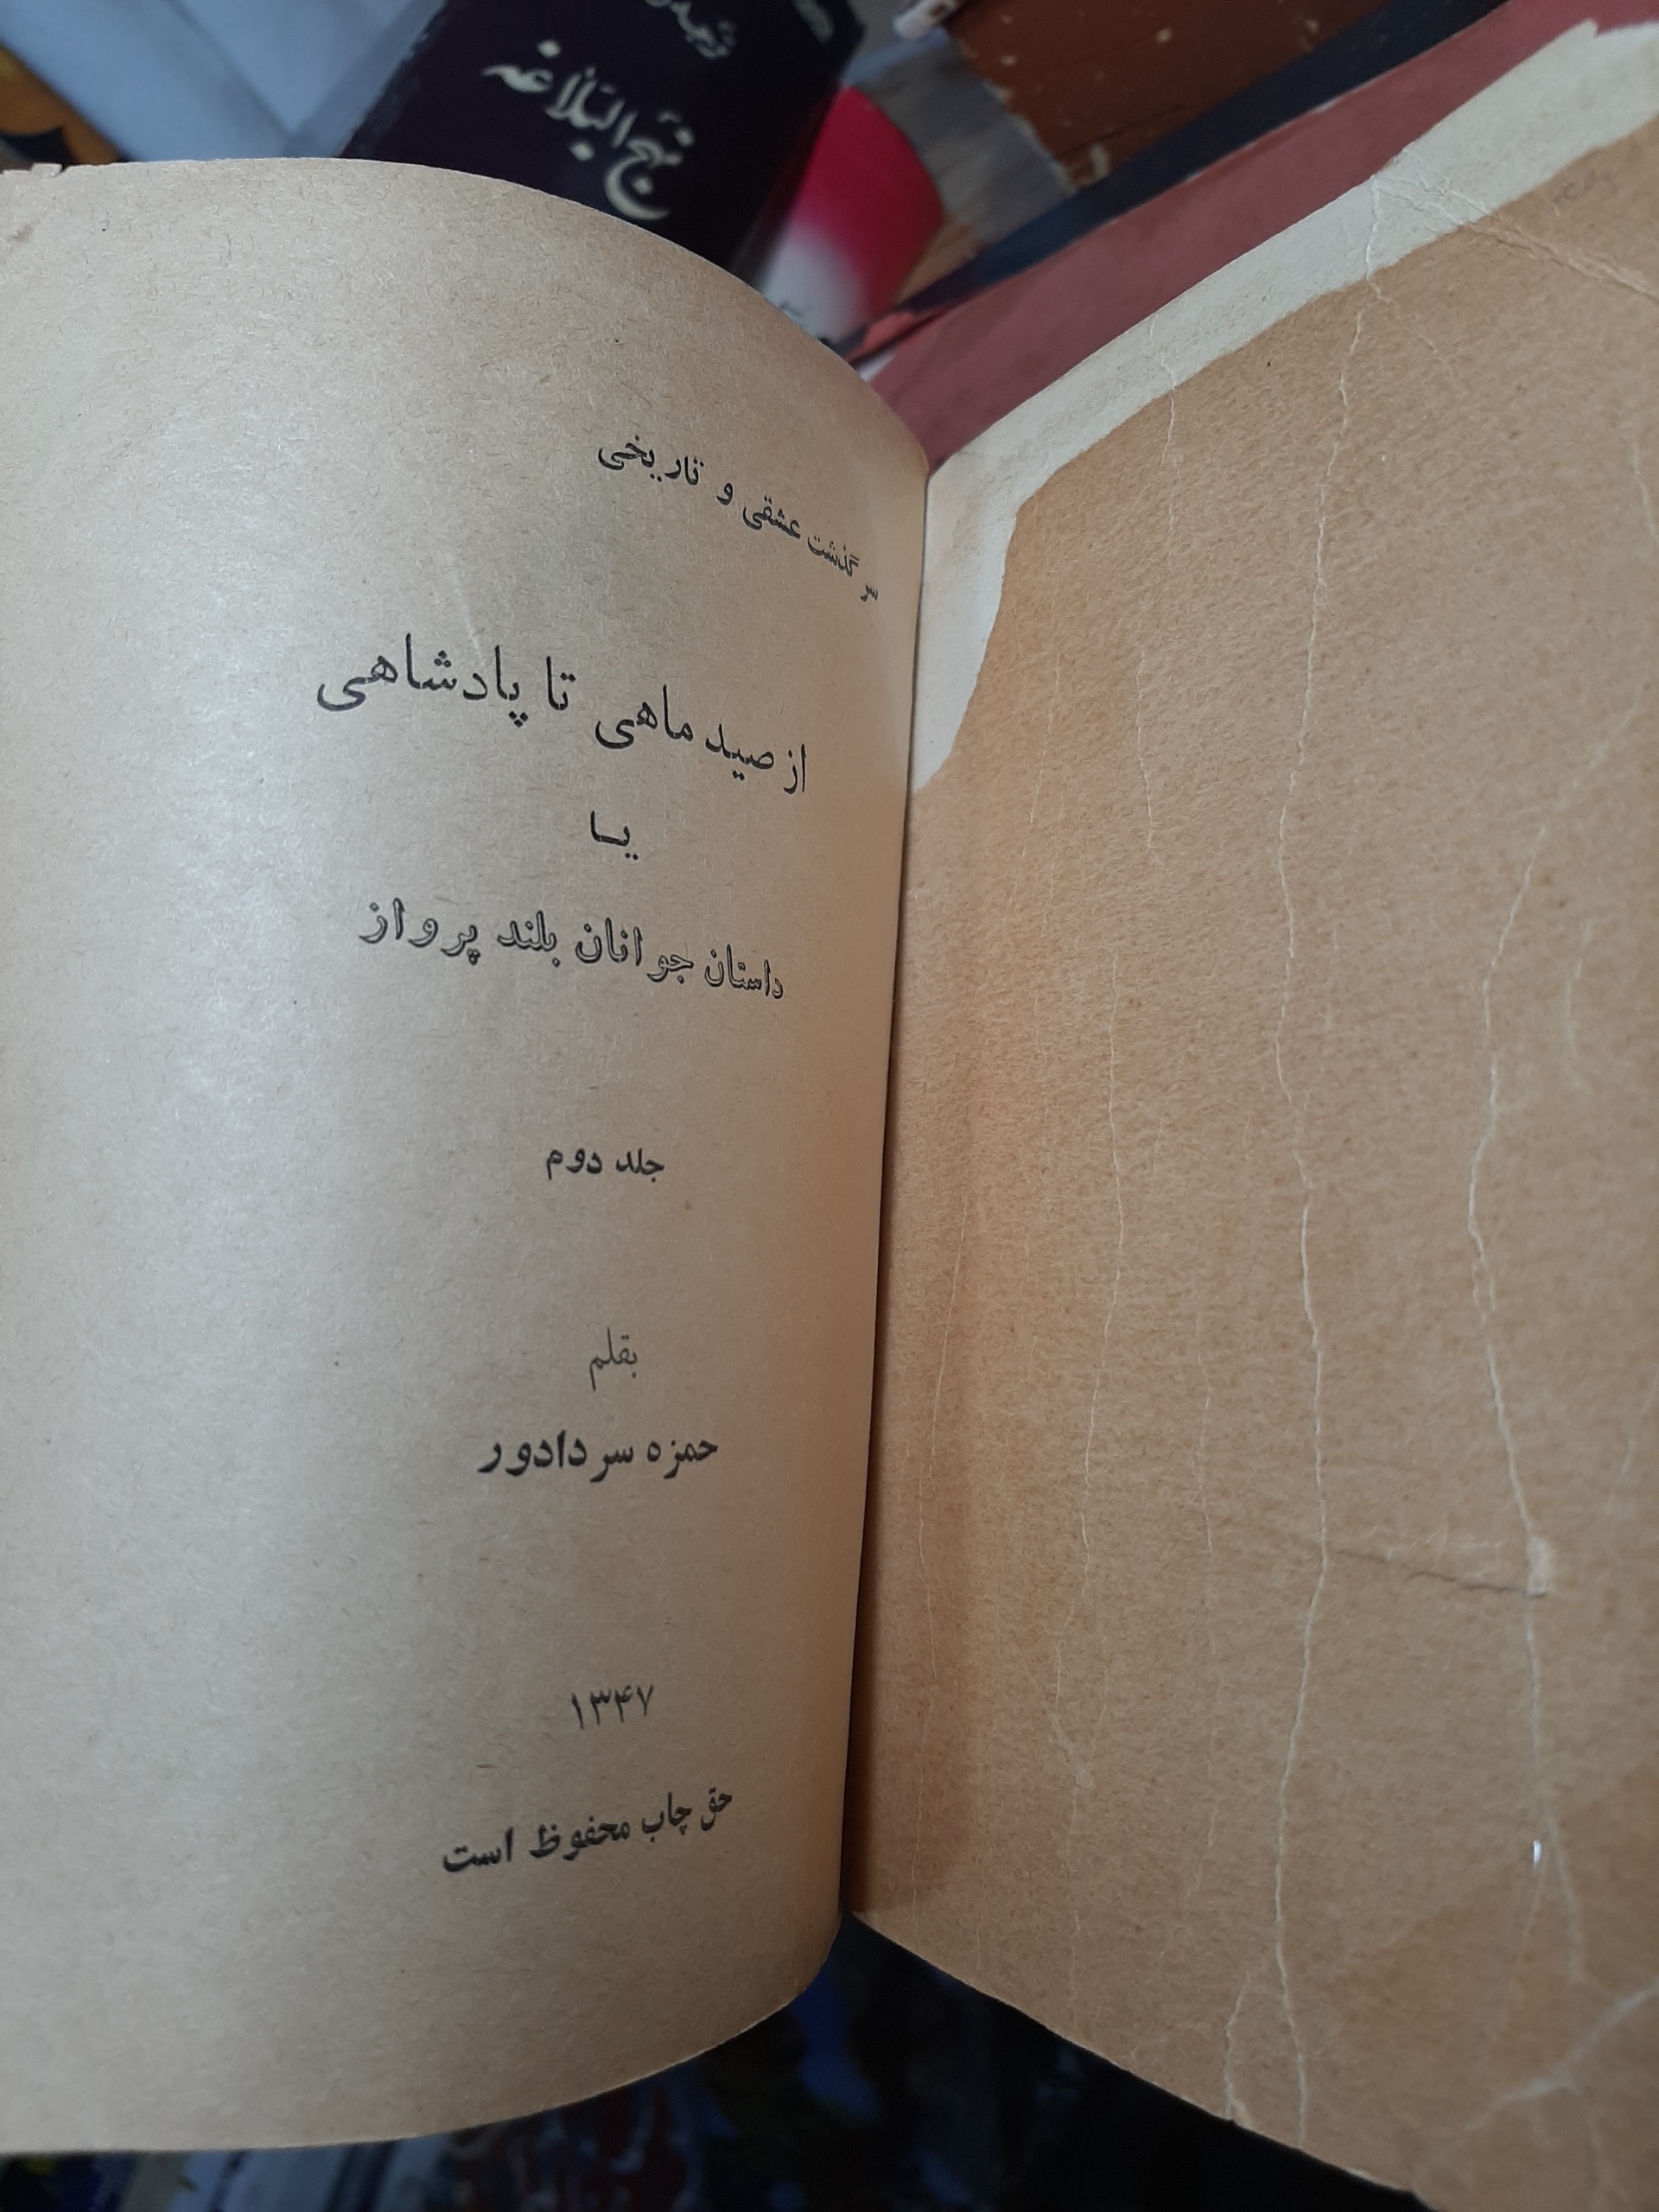 نهج البلاغه
سرگذشت عشقی و تاریخی
از صید ماهی تا پادشاهی
یا
داستان جوانان بلند پرواز
جلد دوم
بقلم
حمزه سردادور
۱۳۴۷
حق چاپ محفوظ است